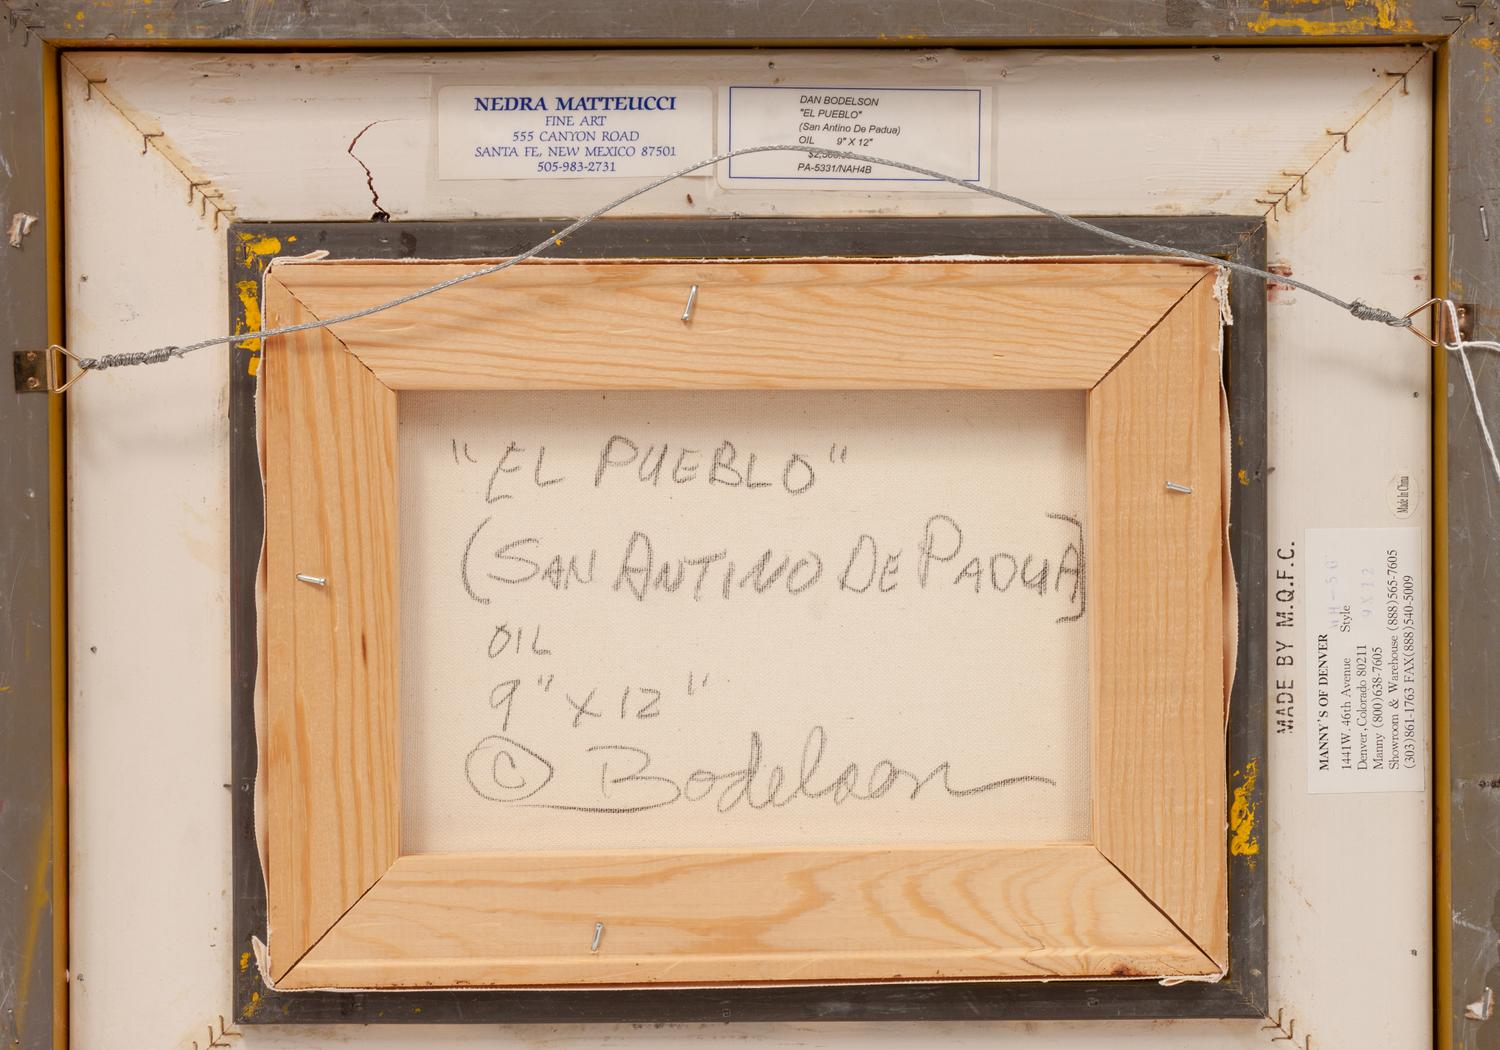 NEDRA MATTEUCCI
FINE ART
555 CANYON ROAD
SANTA FE, NEW MEXICO 87501
505-983-2731
DAN BODELSON
"EL PUEBLO"
(San Antino De Padua)
OIL 9" X 12"
PA-5331/NAH4B
"EL PUEBLO"
(SAN ANTINO DE PADUA]
OIL
9" X 12"
© Bodelson
MADE BY M.Q.F.C.
Made In China
MANNY'S OF DENVER
1441W. 46th Avenue Style
Denver, Colorado 80211 9X12
Manny (800)638-7605
Showroom & Warehouse (888)565-7605
(303)861-1763 FAX(888)540-5009